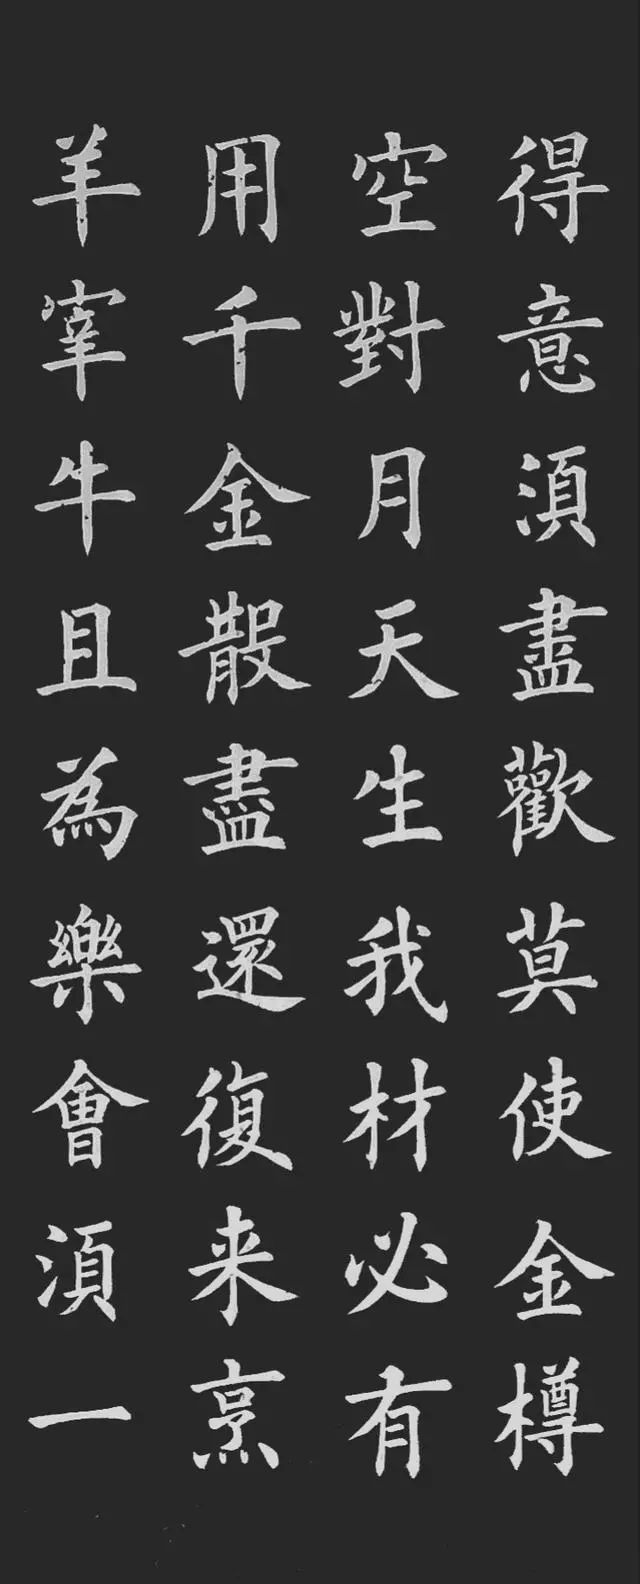 得意湏盡歡莫使金樽
空對月天生我材必有
用千金散盡還復来烹
羊宰牛且為樂會湏一